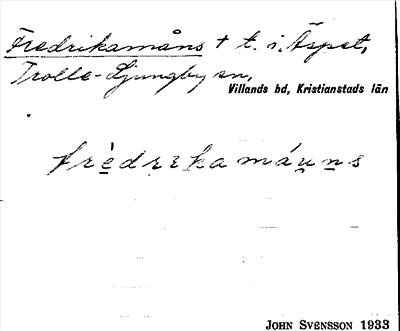 Fredrikamåns + t. i. Äspet,
Trolle-Ljungby sn,
Villands hd, Kristianstads län
frèdrikamáuns
JOHN SVENSSON 1933